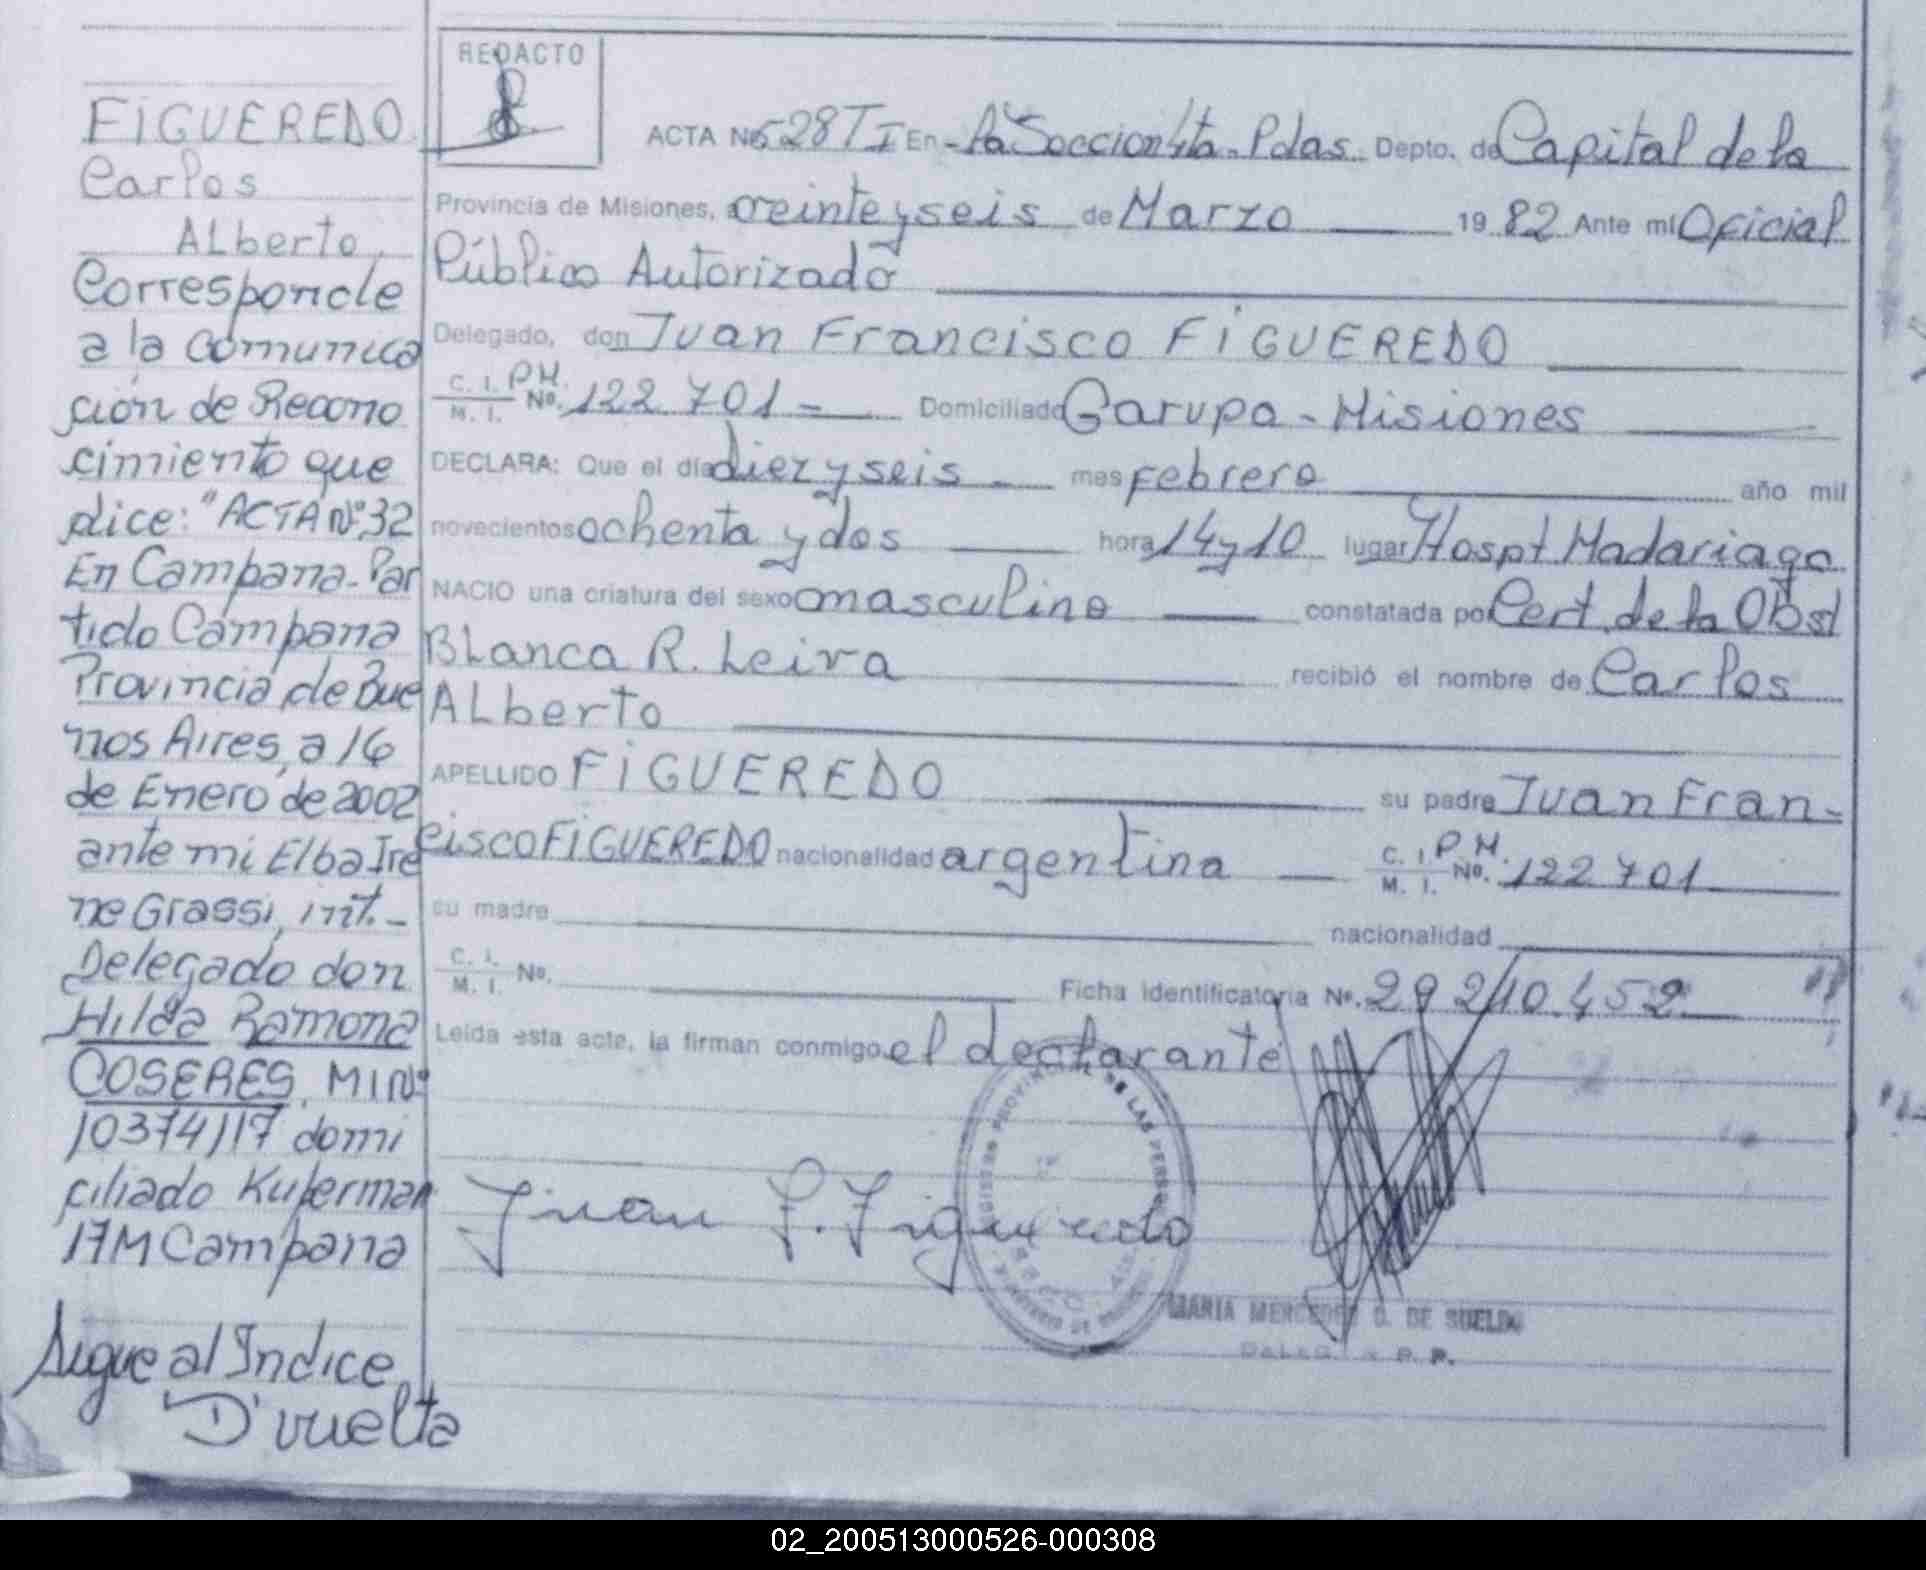 FIGUEREDO
Carlos
ALberto
Corresponde
a la comunica
ción de Recono
cimiento que
dice: "ACTA Nº 32
En Campana-Par
tido Campana
Provincia de Bue
nos Aires, a 16
de Enero de 2002
ante mi Elba Ire
ne Grassi, int.-
Delegado don
Hilda Ramona
COSERES, MI Nº
10374117 domi
ciliado Kuferman
17M Campana
Sigue al Indice
D'vuelta
REDACTO
ACTA Nº 528 TI En - la Seccion 4ta. Pdas. Depto. de Capital de la
Provincia de Misiones, a veinteyseis de Marzo 19 82 Ante mi Oficial
Público Autorizado
Delegado, don Juan Francisco FiGUEREDO
C. I. P.M.
M. I. Nº. 122 701 - Domiciliado Garupa - Misiones
DECLARA: Que el día diez y seis mes febrero año mil
novecientos ochenta y dos hora 14 y 10 lugar Hospt Madariaga
NACIO una criatura del sexo masculino constatada por Cert. de la Obst
BLanca R. Leiva recibió el nombre de Carlos
ALberto
APELLIDO FiGUEREDO su padre Juan Fran-
cisco FiGUEREDO nacionalidad argentina C. I. P.M.
M. I. Nº. 122 701
su madre nacionalidad
C. I.
M. I. Nº. Ficha identificatoria Nº. 29 210.452
Leída esta acta, la firman conmigo el declarante
Juan F. Figueredo
MARIA MERCEDES G. DE SUELDO
02_200513000526-000308